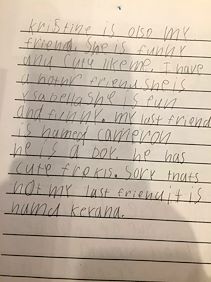 kristine is olso my
friend. She is funny
any cute like me. I have
a nothr friend she is
ysabella she is fun
and funny. my last friend
is named cameron
he is a boy. he has
cute frekis. Sory thats
not my last friend it is
namd kerana.